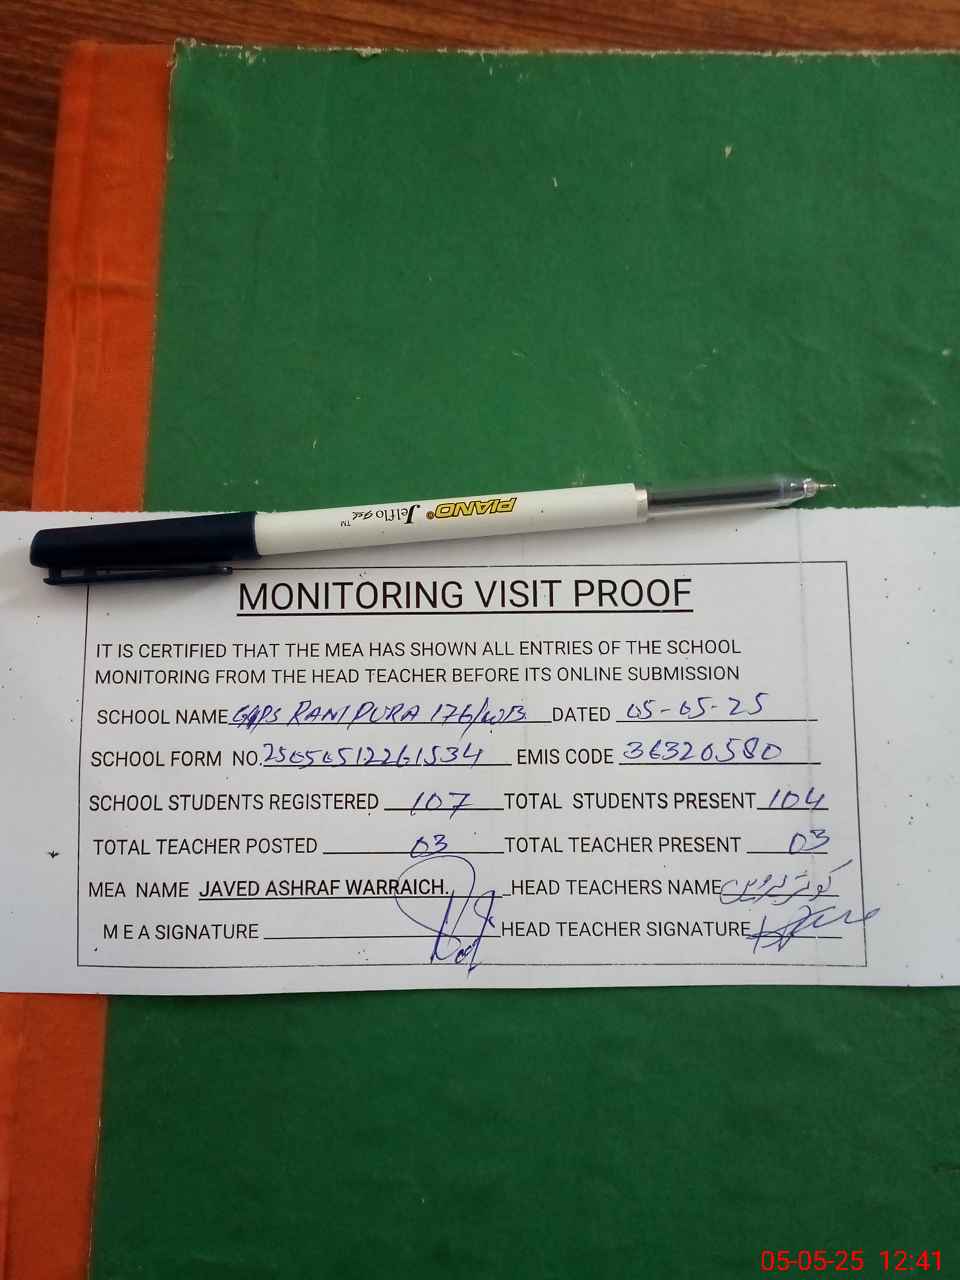 PIANO® Jelflo gel™
MONITORING VISIT PROOF
IT IS CERTIFIED THAT THE MEA HAS SHOWN ALL ENTRIES OF THE SCHOOL
MONITORING FROM THE HEAD TEACHER BEFORE ITS ONLINE SUBMISSION
SCHOOL NAME GGPS RANI PURA 176/WB DATED 05-05-25
SCHOOL FORM NO. 25050512261534 EMIS CODE 36320580
SCHOOL STUDENTS REGISTERED 107 TOTAL STUDENTS PRESENT 104
TOTAL TEACHER POSTED 03 TOTAL TEACHER PRESENT 03
MEA NAME JAVED ASHRAF WARRAICH. HEAD TEACHERS NAME کوثر پروین
M E A SIGNATURE HEAD TEACHER SIGNATURE
05-05-25 12:41